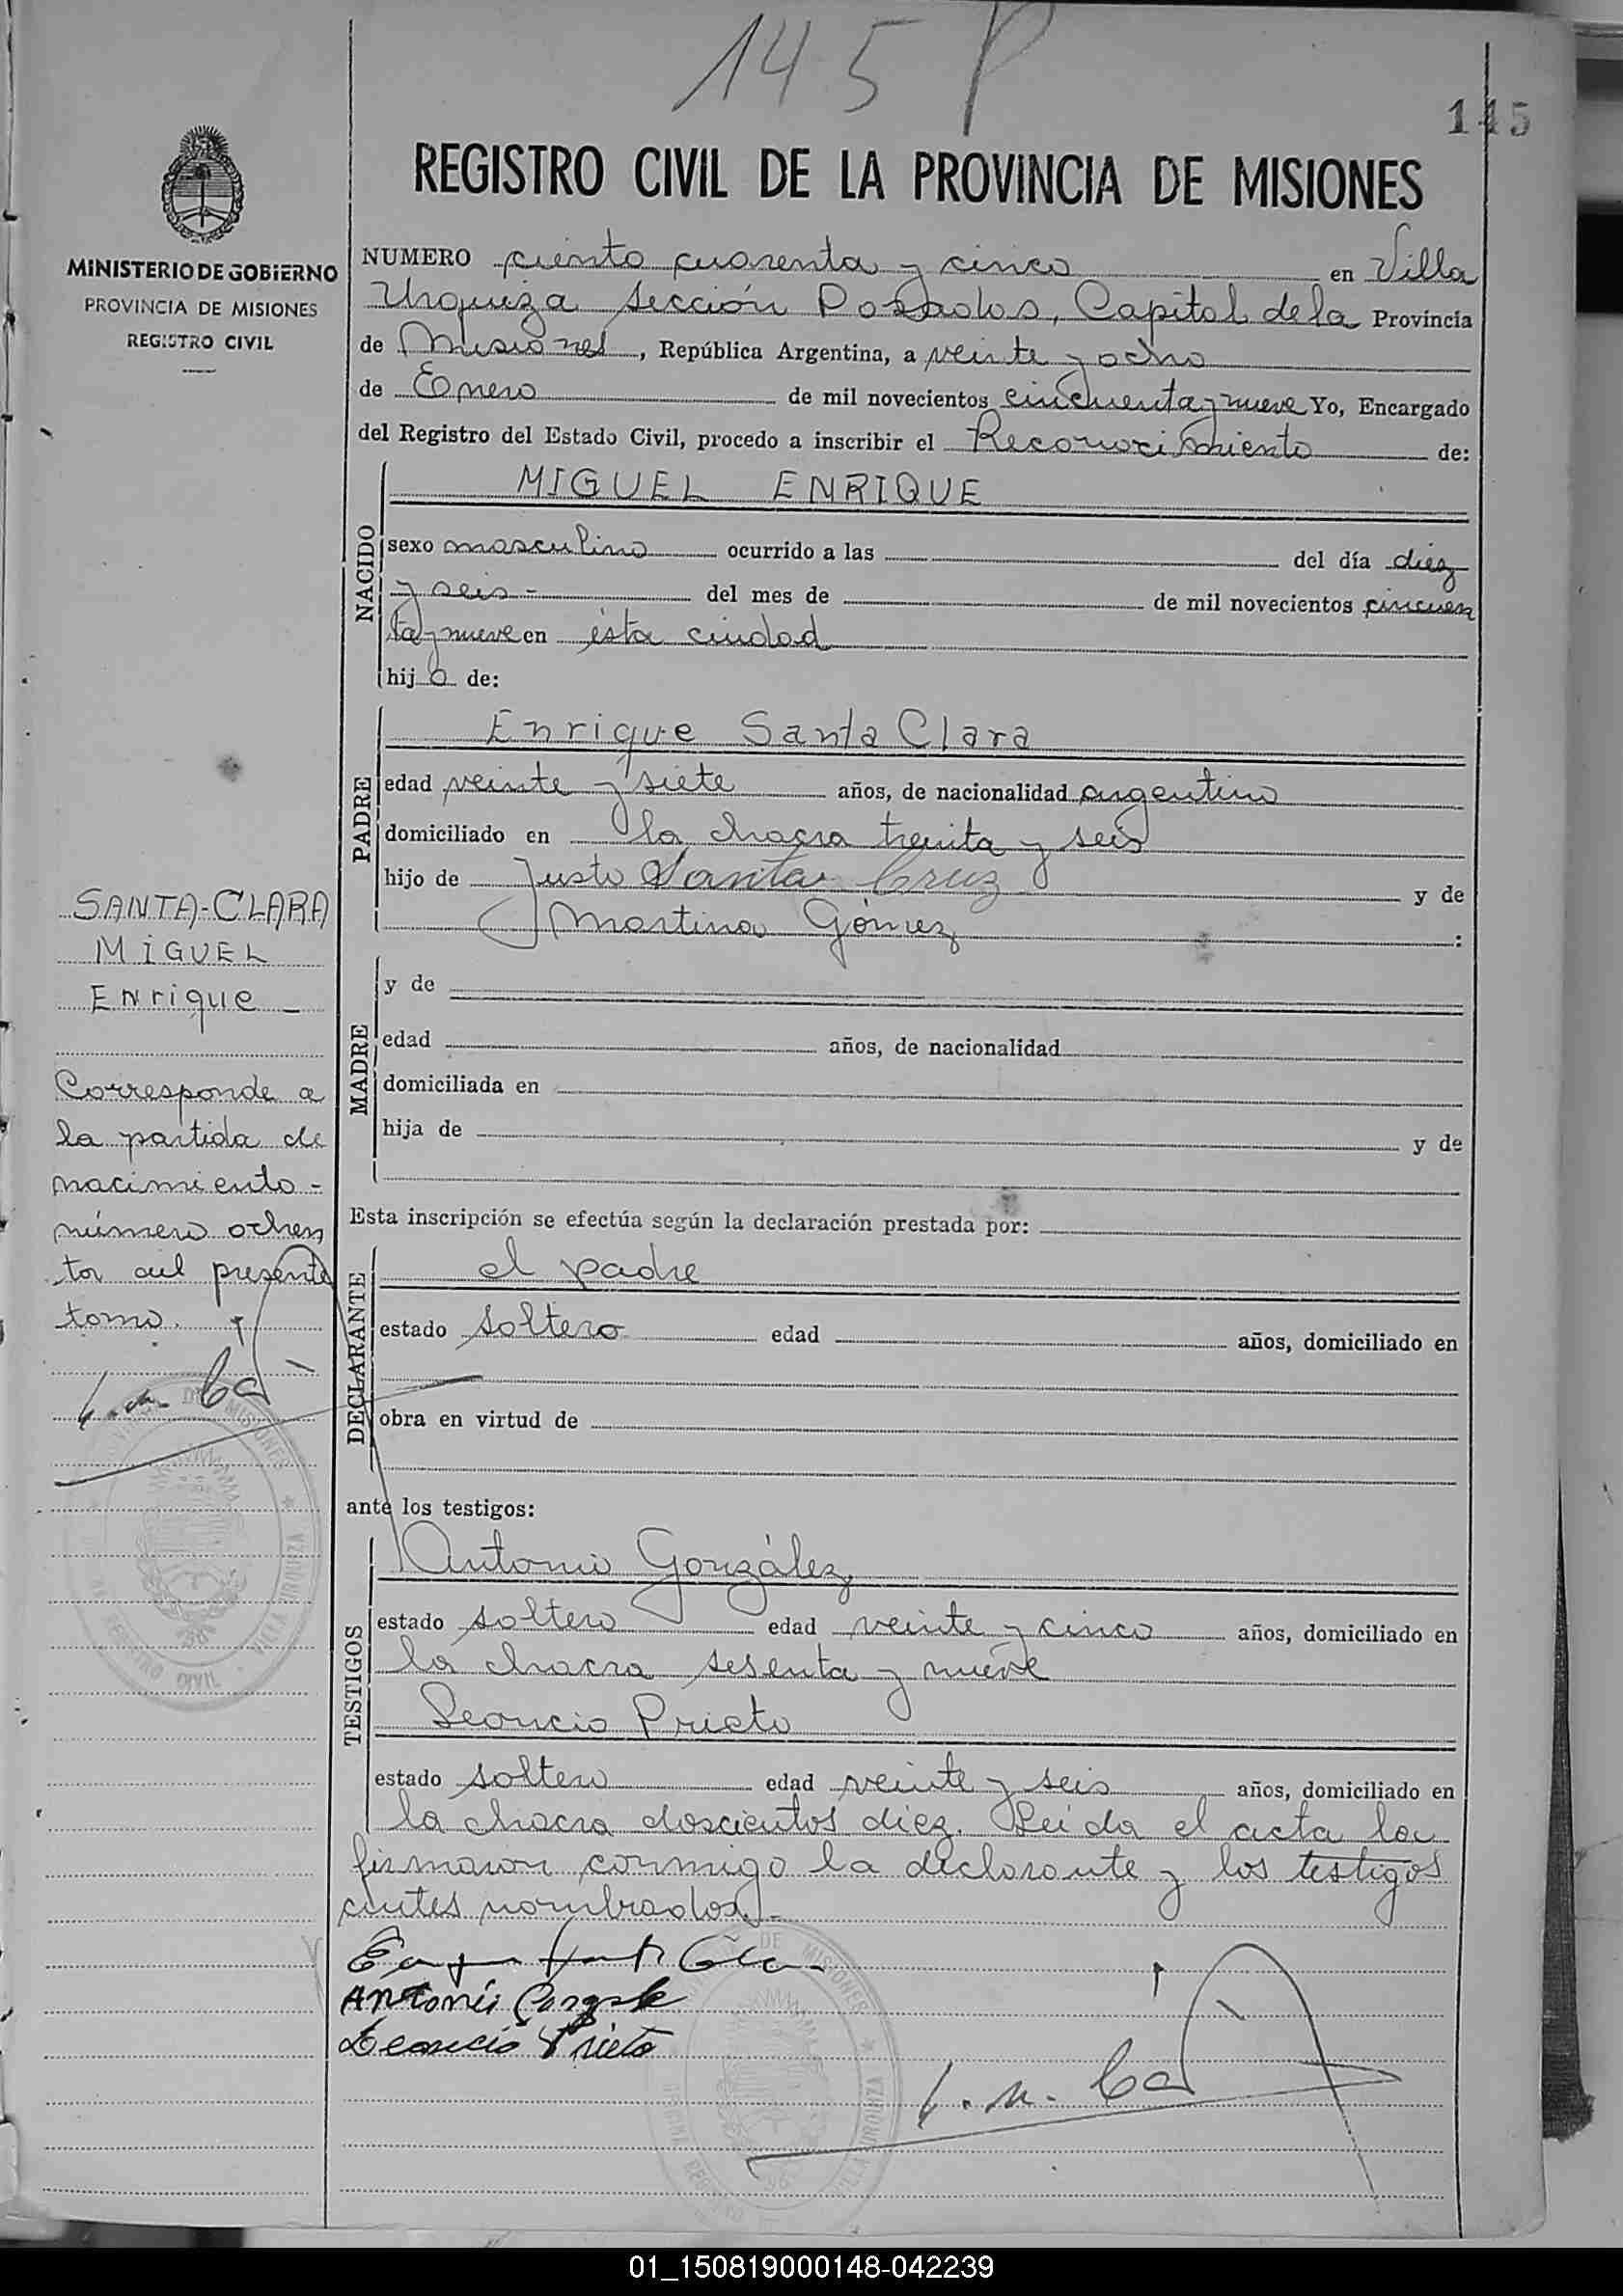 145 P
145
REGISTRO CIVIL DE LA PROVINCIA DE MISIONES
MINISTERIO DE GOBIERNO
PROVINCIA DE MISIONES
REGISTRO CIVIL
NUMERO ciento cuarenta y cinco en Villa
Urquiza sección Posadas, Capital de la Provincia
de Misiones, República Argentina, a veinte y ocho
de Enero de mil novecientos cincuenta y nueve Yo, Encargado
del Registro del Estado Civil, procedo a inscribir el Reconocimiento de:
NACIDO
MIGUEL ENRIQUE
sexo masculino ocurrido a las del día diez
y seis - del mes de de mil novecientos cincuen
ta y nueve en ésta ciudad
hijo de:
PADRE
Enrique Santa Clara
edad veinte y siete años, de nacionalidad argentino
domiciliado en la chacra treinta y seis
hijo de Justo Santa Cruz y de
Martina Gómez :
MADRE
y de
edad años, de nacionalidad
domiciliada en
hija de y de
Esta inscripción se efectúa según la declaración prestada por:
DECLARANTE
el padre
estado soltero edad años, domiciliado en
obra en virtud de
ante los testigos:
TESTIGOS
Antonio González
estado soltero edad veinte y cinco años, domiciliado en
la chacra sesenta y nueve
Leoncio Prieto
estado soltero edad veinte y seis años, domiciliado en
la chacra doscientos diez. Leída el acta la
firmaron conmigo la declarante y los testigos
antes nombrados.-
Antonio
Leoncio Prieto
SANTA-CLARA
MIGUEL
Enrique -
Corresponde a
la partida de
nacimiento -
número ochen
ta del presente
tomo.
DE MISIONES
REGISTRO CIVIL · VILLA URQUIZA
DE MISIONES
VILLA URQUIZA
01_150819000148-042239